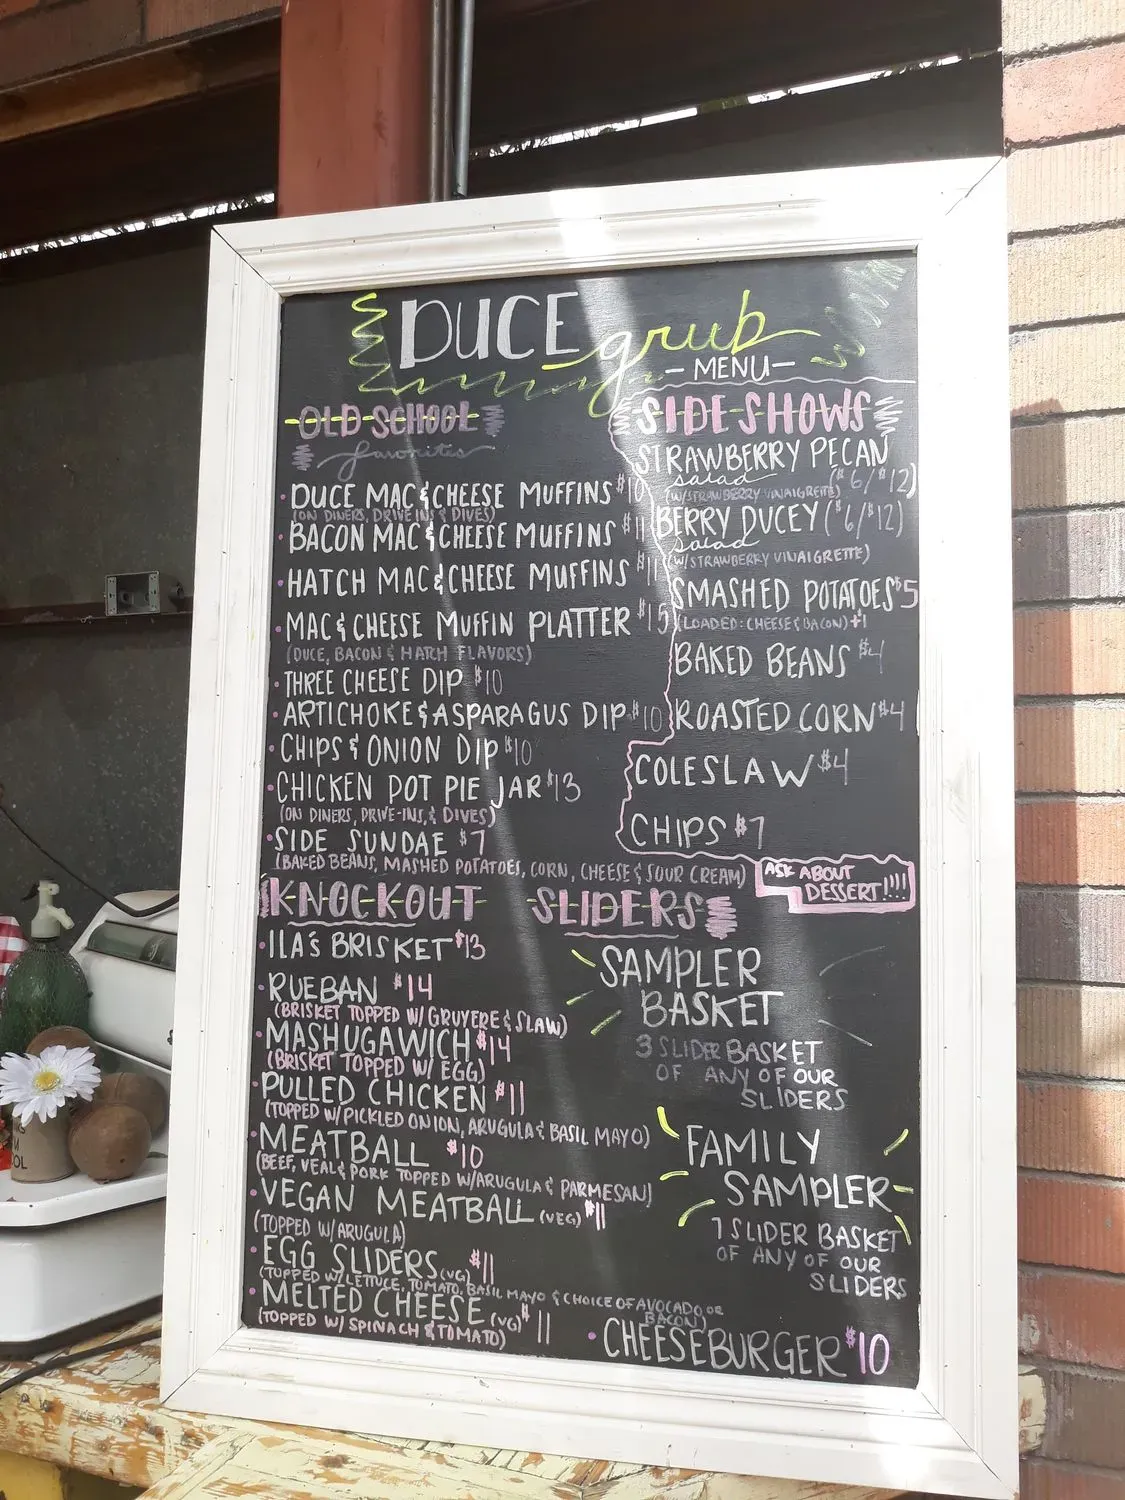 DUCE grub
- MENU -
OLD SCHOOL
favorites
DUCE MAC & CHEESE MUFFINS $10
(ON DINERS, DRIVE INS & DIVES)
BACON MAC & CHEESE MUFFINS $11
HATCH MAC & CHEESE MUFFINS $11
MAC & CHEESE MUFFIN PLATTER $15
(DUCE, BACON & HATCH FLAVORS)
THREE CHEESE DIP $10
ARTICHOKE & ASPARAGUS DIP $10
CHIPS & ONION DIP $10
CHICKEN POT PIE JAR $13
(ON DINERS, DRIVE-INS, & DIVES)
SIDE SUNDAE $7
(BAKED BEANS, MASHED POTATOES, CORN, CHEESE & SOUR CREAM)
SIDE SHOWS
STRAWBERRY PECAN
salad ($6/$12)
(W/STRAWBERRY VINAIGRETTE)
BERRY DUCEY ($6/$12)
salad
(W/STRAWBERRY VINAIGRETTE)
SMASHED POTATOES $5
(LOADED: CHEESE & BACON) +1
BAKED BEANS $4
ROASTED CORN $4
COLESLAW $4
CHIPS $7
ASK ABOUT
DESSERT!!!!
KNOCKOUT SLIDERS
ILA'S BRISKET $13
RUEBAN $14
(BRISKET TOPPED W/ GRUYERE & SLAW)
MASHUGAWICH $14
(BRISKET TOPPED W/ EGG)
PULLED CHICKEN $11
(TOPPED W/PICKLED ONION, ARUGULA & BASIL MAYO)
MEATBALL $10
(BEEF, VEAL & PORK TOPPED W/ARUGULA & PARMESAN)
VEGAN MEATBALL (VEG) $11
(TOPPED W/ARUGULA)
EGG SLIDERS (VG) $11
(TOPPED W/ LETTUCE, TOMATO, BASIL MAYO & CHOICE OF AVOCADO OR
BACON)
MELTED CHEESE (VG) $11
(TOPPED W/ SPINACH & TOMATO)
SAMPLER
BASKET
3 SLIDER BASKET
OF ANY OF OUR
SLIDERS
FAMILY
SAMPLER
7 SLIDER BASKET
OF ANY OF OUR
SLIDERS
CHEESEBURGER $10